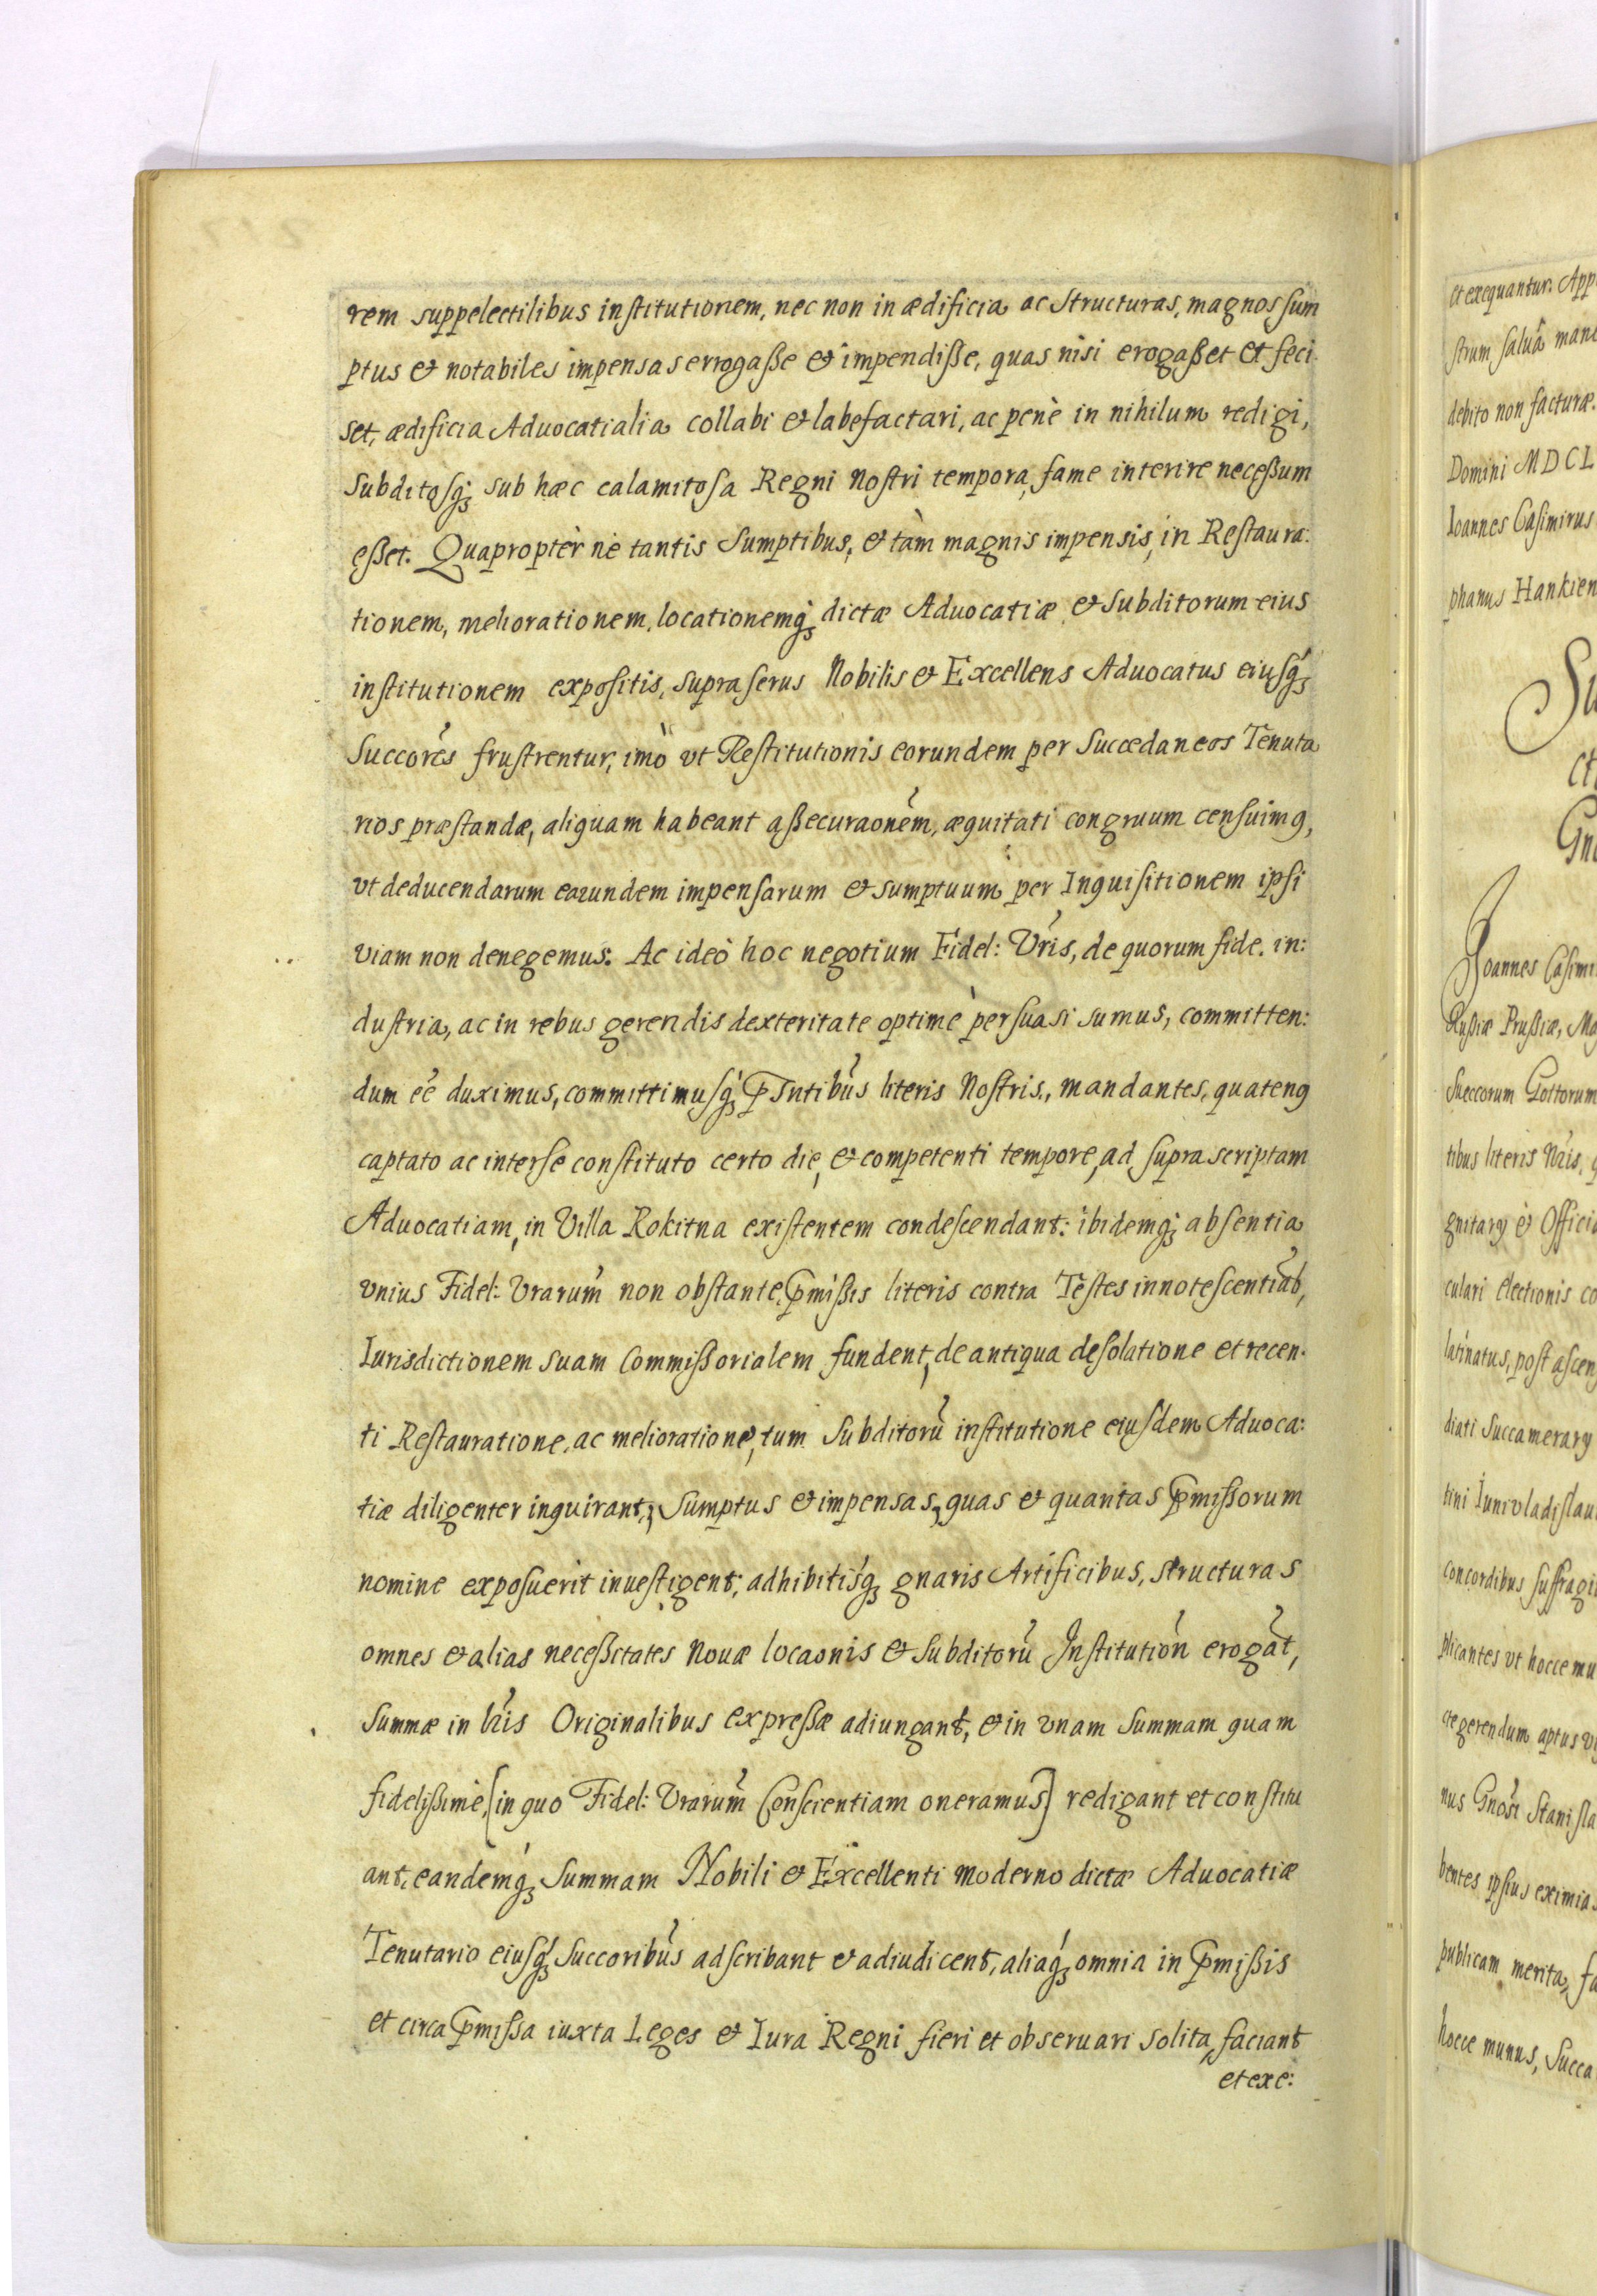 rem suppelectilibus institutionem, nec non in ædificia ac Structuras, magnos sum
ptus & notabiles impensas errogaße & impendiße, quas nisi erogaßet et feci
set, ædificia Aduocatialia collabi & labefactari, ac penè in nihilum redigi,
Subditosq; sub hæc calamitosa Regni Nostri tempora, fame interire neceßum
eßet. Quapropter ne tantis Sumptibus, & tàm magnis impensis, in Restaura:
tionem, meliorationem, locationemq; dictæ Aduocatiæ & Subditorum eius
institutionem expositis, supraserus Nobilis & Excellens Aduocatus eiusq;
Succores frustrentur, imò vt Restitutionis eorundem per Succedaneos Tenuta
rios præstandæ, aliquam habeant aßecuraonem, æquitati congruum censuim9,
vt deducendarum earundem impensarum & sumptuum per Inquisitionem ipsi
viam non denegemus. Ac ideò hoc negotium Fidel: Vris, de quorum fide. in:
dustria, ac in rebus gerendis dexteritate optimè persuasi sumus, committen:
dum ee duximus, committimusq; Pntibus literis Nostris, mandantes, quaten9
captato ac interse constituto certo die, & competenti tempore, ad supra scriptam
Aduocatiam, in Villa Rokitna existentem condescendant: ibidemq; absentia
vnius Fidel: Vrarum non obstante, Pmißis literis contra Testes innotescentiab,
Iurisdictionem suam Commißorialem fundent, de antiqua desolatione et recen.
ti Restauratione, ac melioratione, tum Subditoru institutione eiusdem Aduoca:
tiæ diligenter inquirant; Sumptus & impensas, quas & quantas Pmißorum
nomine exposuerit inuestigent; adhibitisq; gnaris Artificibus, structuras
omnes & alias neceßitates Nouæ locaonis & Subditoru Institution erogat,
Summæ in lris Originalibus expreßæ adiungant, & in vnam Summam quam
fidelißimè, [in quo Fidel: Vrarum Conscientiam oneramus] redigant et constitu
ant, eandemq; Summam Nobili & Excellenti moderno dictæ Aduocatiæ
Tenutario eiusq; Succoribus adscribant & adiudicent, aliaq; omnia in Pmißis
et circa Pmissa iuxta Leges & Iura Regni fieri et obseruari solita, faciant
et exe:
et exequantur. App
strum, saluâ man
debito non facturæ.
Domini MDCL
Ioannes Casimirus
phanus Hankien
Su
Gn
Joannes Casimi
Rußiæ Prußiæ, Ma
Sueccorum Gottorum
tibus literis Nris, q
gnitary & Offici
culari Electionis co
latinatus, post ascen
diati Succamerary
tini Iuniuladislau
concordibus suffragi
plicantes vt hocce mu
gerendum aptus v
nus Gnosi Stanisla
bentes ipsius eximia
publicam merita, fa
hocce munus, Succa